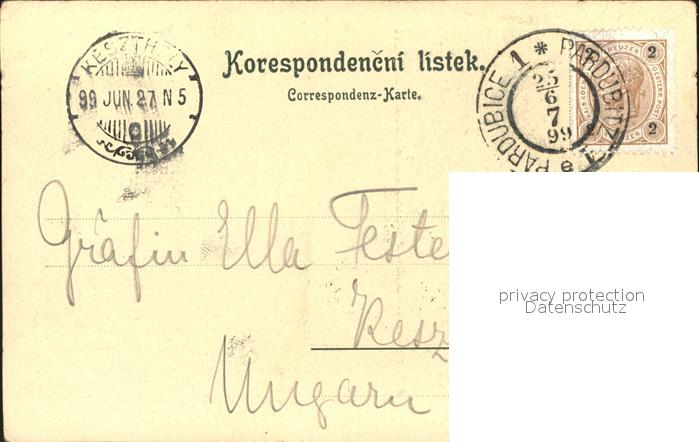 Korespondenční lístek.
Correspondenz-Karte.
KESZTHELY
99 JUN. 27. N 5
PARDUBICE 1 * PARDUBITZ
25
6
7
99
2 KREUZER 2
2
Gräfin Ella Feste
Kesz
Ungarn
privacy protection
Datenschutz